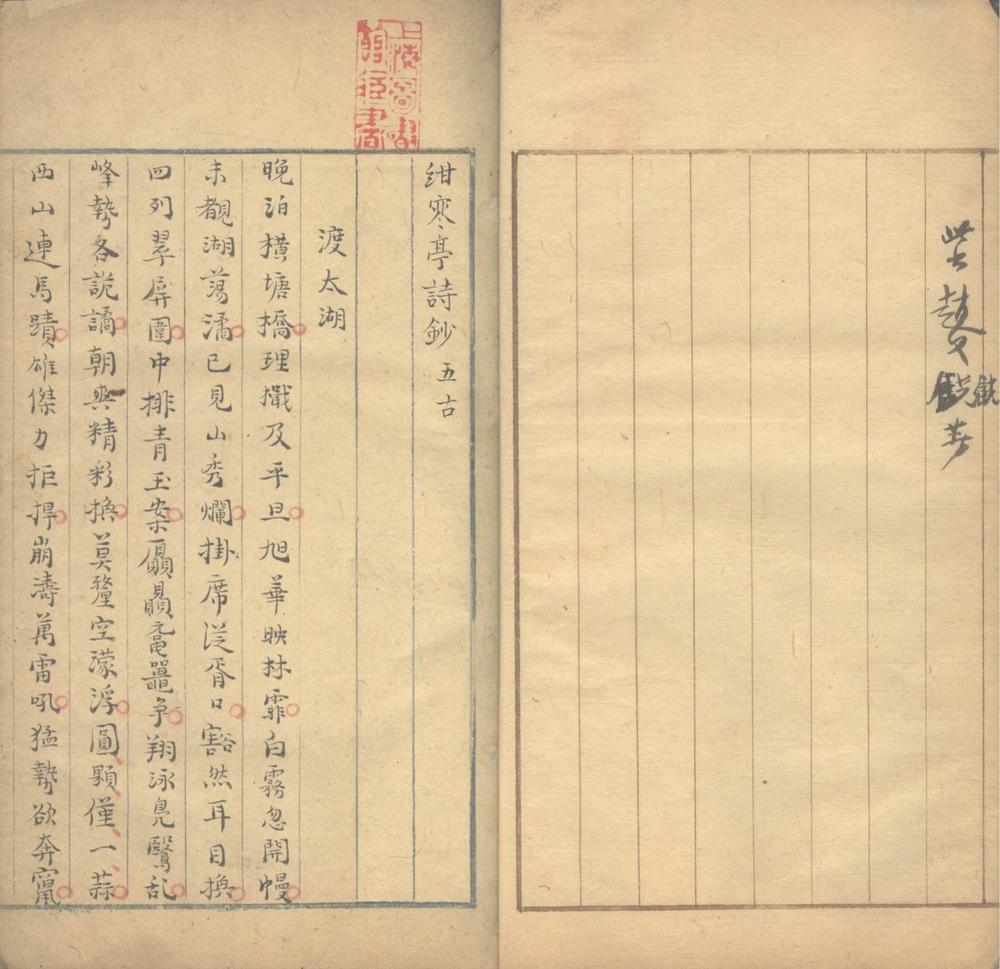 紺寒亭詩鈔 五古
渡太湖
晚泊橫塘橋理檝及平旦旭華映林霏白霧忽開幔
未覩湖蕩潏已見山秀爛掛席從胥口豁然耳目換
四列翠屏圍中排青玉案贔屭黿鼉爭翔泳鳧鷖亂
峰勢各詭譎朝興精彩換莫釐空濛浮圓顆僅一蒜
西山連馬蹟雄傑力拒捍崩濤萬雷吼猛勢欲奔竄